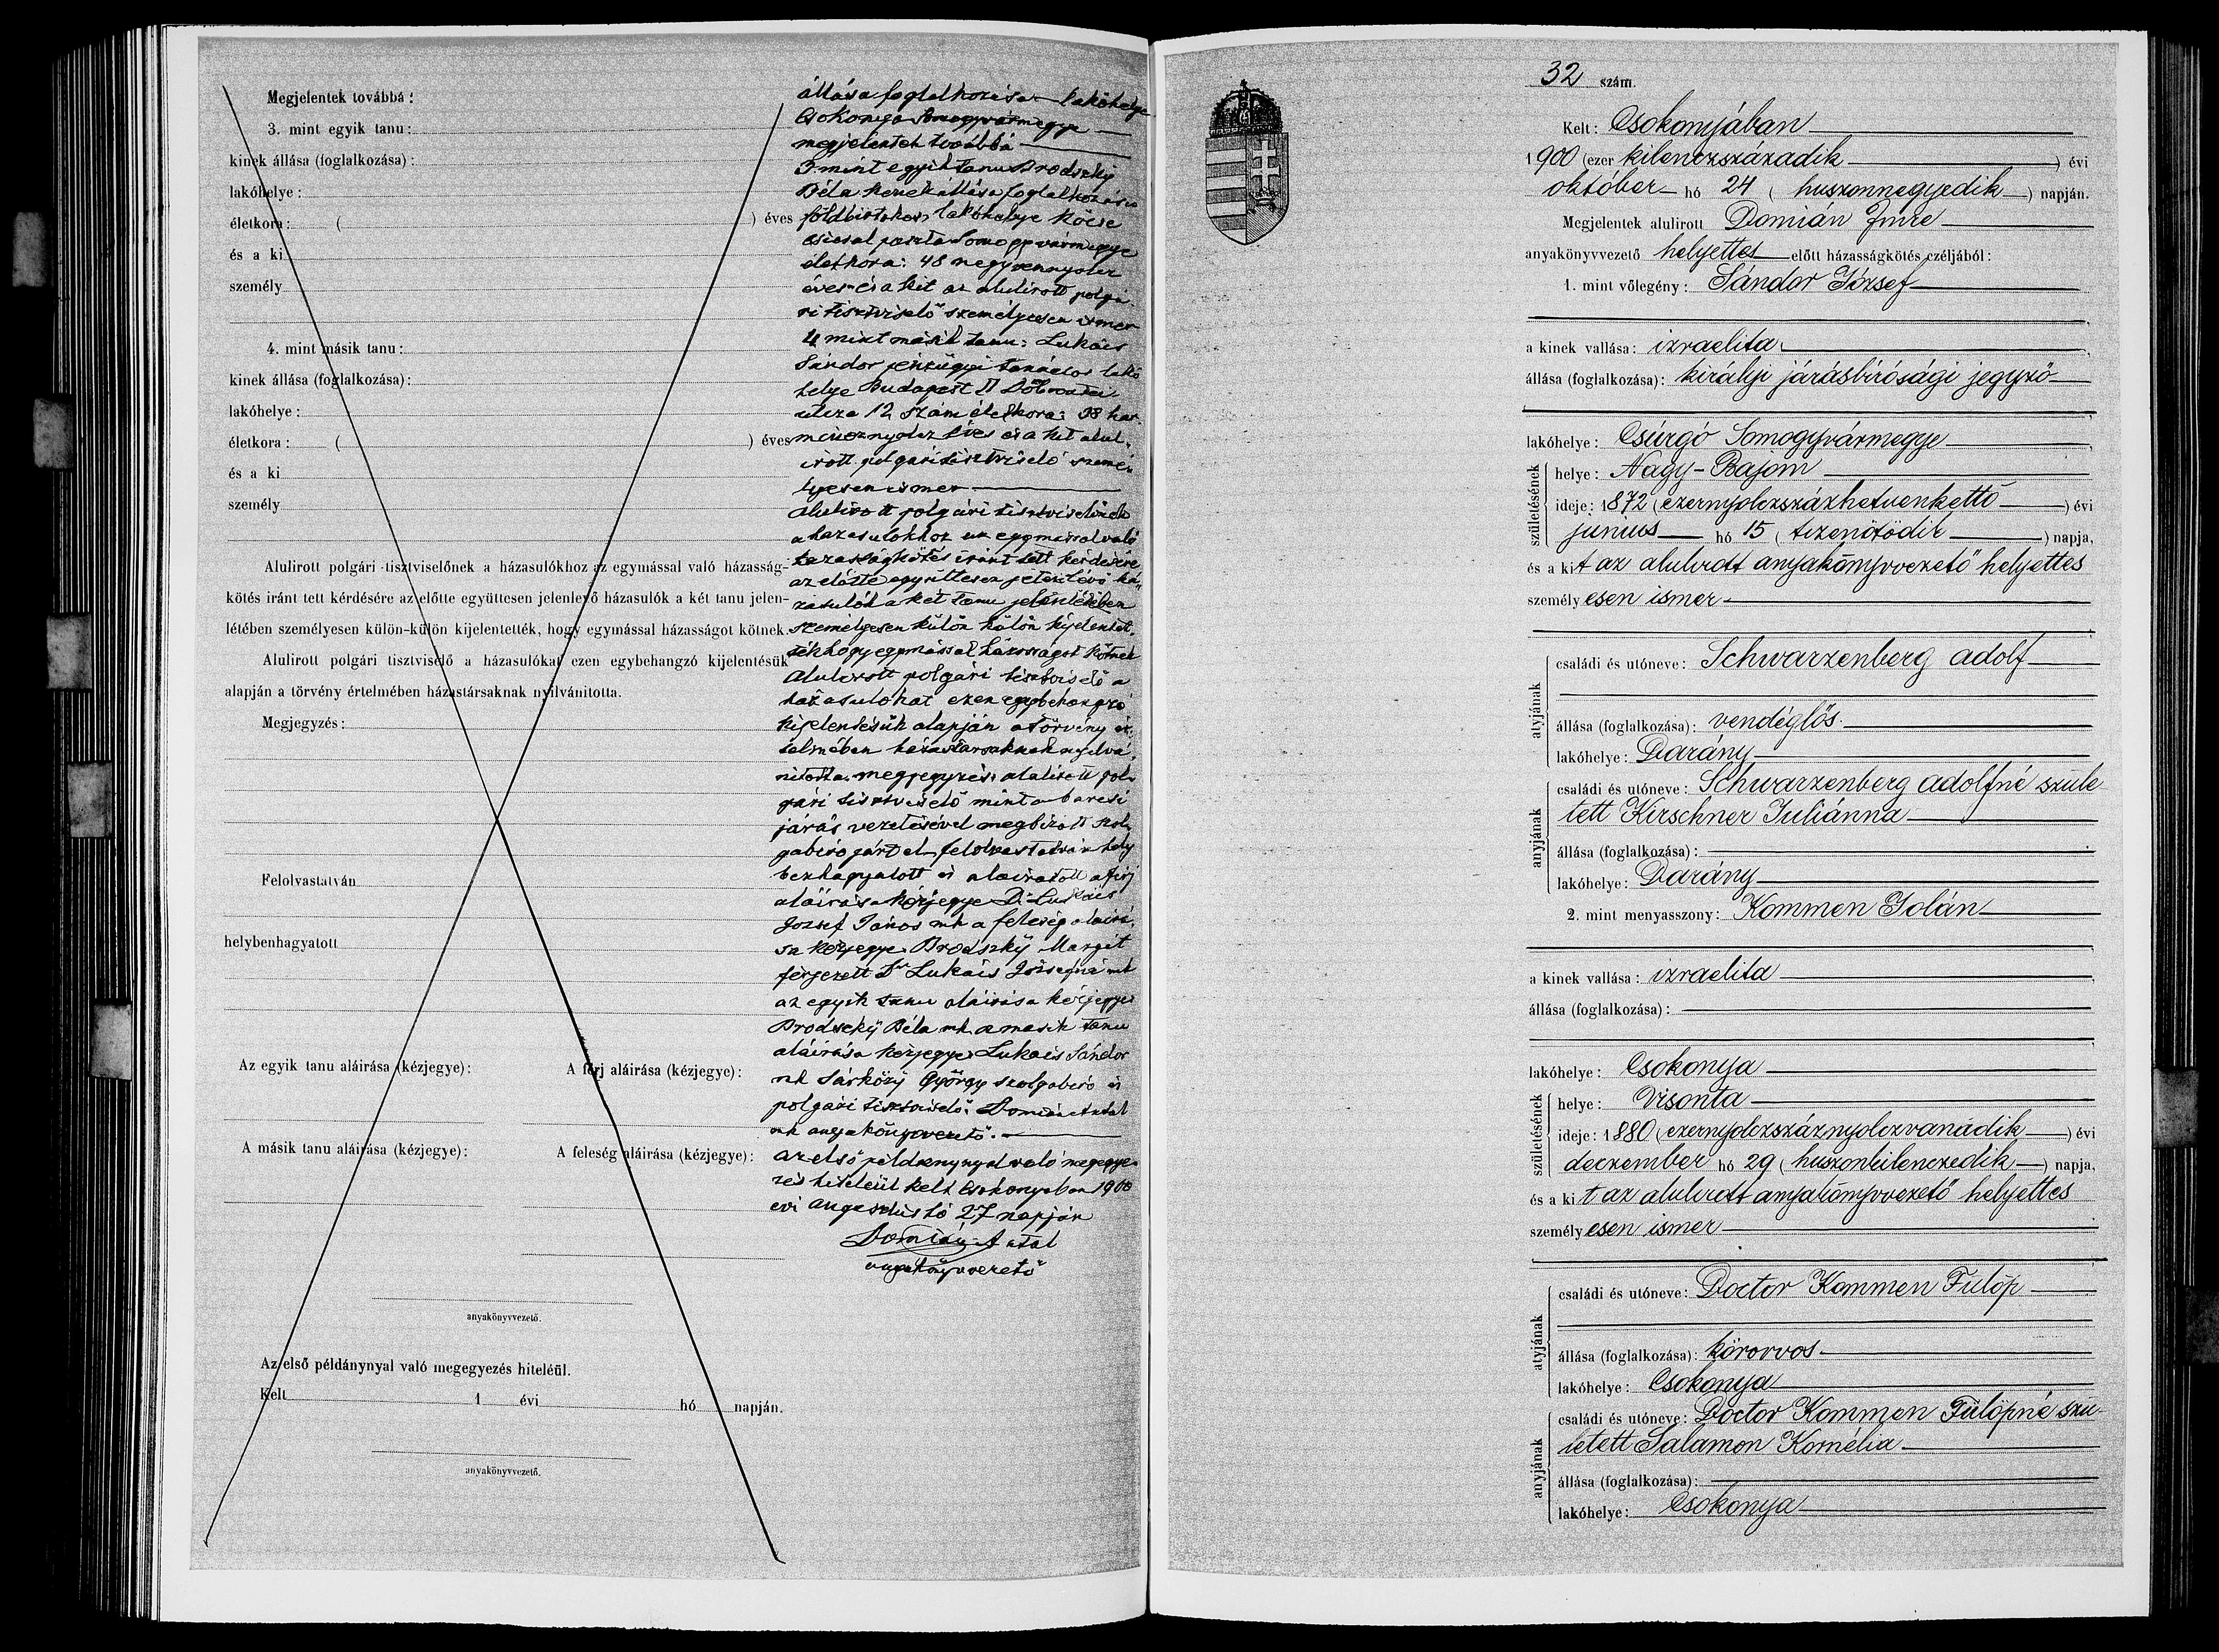 Megjelentek továbbá:
3. mint egyik tanu:
kinek állása (foglalkozása):
lakóhelye:
életkora: ( ) éves
és a ki
személy
4. mint másik tanu:
kinek állása (foglalkozása):
lakóhelye:
életkora: ( ) éves
és a ki
személy
Alulirott polgári tisztviselőnek a házasulókhoz az egymással való házasság-
kötés iránt tett kérdésére az előtte együttesen jelenlevő házasulók a két tanu jelen-
létében személyesen külön-külön kijelentették, hogy egymással házasságot kötnek.
Alulirott polgári tisztviselő a házasulókat ezen egybehangzó kijelentésük
alapján a törvény értelmében házastársaknak nyilvánitotta.
Megjegyzés:
Felolvastatván
helybenhagyatott
Az egyik tanu aláirása (kézjegye):
A férj aláirása (kézjegye):
A másik tanu aláirása (kézjegye):
A feleség aláirása (kézjegye):
anyakönyvvezető.
Az első példánynyal való megegyezés hiteléül.
Kelt 1 évi hó napján.
anyakönyvvezető.
állása foglalkozása lakóhelye
Csokonya Somogyvármegye
megjelentek továbbá
3. mint egyik tanu Brodszky
Béla kinek állása foglalkozása
földbirtokos lakóhelye Kőcse
puszta Somogyvármegye
életkora: 48 negyvennyolcz
éves és a kit az alulirott polgá-
ri tisztviselő személyesen ismer
4 mint másik tanu: Lukács
Sándor pénzügyi tanácsos lakó
helye Budapest II
utcza 12 szám életkora: 38 har-
mincznyolcz éves és a kit alul-
irott polgári tisztviselő szemé-
lyesen ismer
alulirott polgári tisztviselőnek
a házasulókhoz az egymással való
házasságkötés iránt tett kérdésére
az előtte együttesen jelenlévő há-
zasulók a két tanu jelenlétében
személyesen külön külön kijelentet-
ték hogy egymással házasságot kötnek
Alulirott polgári tisztviselő a
házasulókat ezen egybehangzó
kijelentésük alapján a törvény ér-
telmében házastársaknak nyilvá-
nitotta. megjegyzés: alulirott pol-
gári tisztviselő mint a barcsi
járás vezetésével megbizott szol-
gabiró járt el felolvastatván hely
benhagyatott és aláiratott a férj
aláirása kézjegye Dr Lukács
József János mk a feleség aláirá-
sa kézjegye Brodszky Margit
férjezett Dr Lukács Józsefné mk
az egyik tanu aláirása kézjegye
Brodszky Béla mk a másik tanu
aláirása kézjegye Lukács Sándor
mk Sárközy György szolgabiró és
polgári tisztviselő Domián Antal
mk anyakönyvvezető.
az első példánynyal való megegye-
zés hiteléül kelt Csokonyában 1900
évi augusztus hó 27 napján
Domián Antal
anyakönyvvezető
32 szám.
Kelt: Csokonyában
1900 (ezer kilenczszázadik) évi
október hó 24 (huszonnegyedik) napján.
Megjelentek alulirott Domián Imre
anyakönyvvezető helyettes előtt házasságkötés czéljából:
1. mint vőlegény: Sándor József
a kinek vallása: izraelita
állása (foglalkozása): királyi járásbirósági jegyző
lakóhelye: Csurgó Somogyvármegye
születésének
helye: Nagy-Bajom
ideje: 1872 (ezernyolczszázhetvenkettő) évi
junius hó 15 (tizenötödik) napja,
és a kit az alulirott anyakönyvvezető helyettes
személyesen ismer
atyjának
családi és utóneve: Schwarzenberg Adolf
állása (foglalkozása): vendéglős
lakóhelye: Darány
anyjának
családi és utóneve: Schwarzenberg Adolfné szüle
tett Kirschner Juliánna
állása (foglalkozása):
lakóhelye: Darány
2. mint menyasszony: Kommen Jolán
a kinek vallása: izraelita
állása (foglalkozása):
lakóhelye: Csokonya
születésének
helye: Visonta
ideje: 1880 (ezernyolczszáznyolczvanadik) évi
deczember hó 29 (huszonkilenczedik) napja,
és a kit az alulirott anyakönyvvezető helyettes
személyesen ismer
atyjának
családi és utóneve: Doctor Kommen Fülöp
állása (foglalkozása): körorvos
lakóhelye: Csokonya
anyjának
családi és utóneve: Doctor Kommen Fülöpné szü-
letett Salamon Kornélia
állása (foglalkozása):
lakóhelye: Csokonya